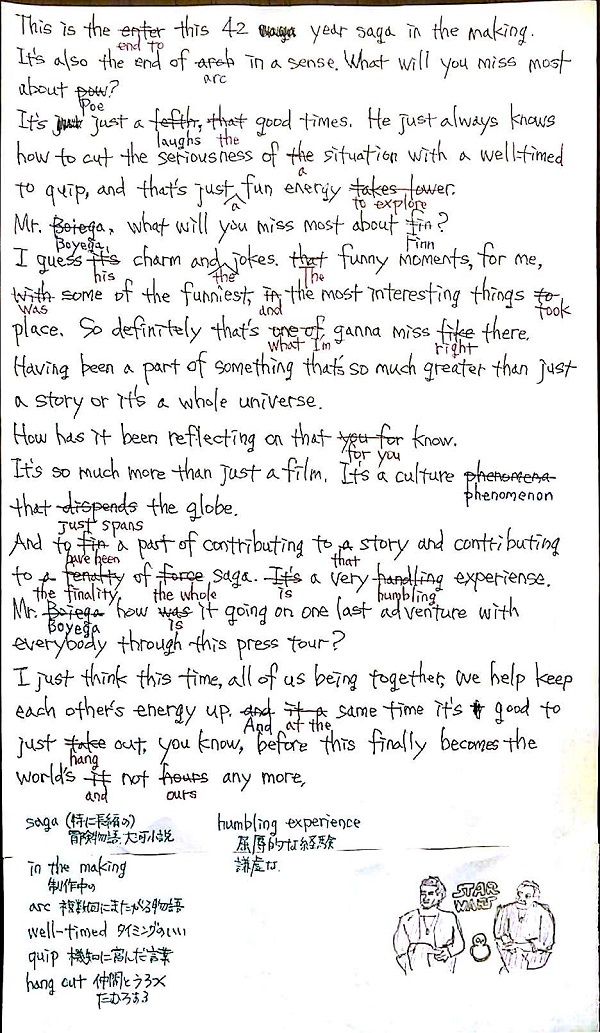 This is the enter this 42 year saga in the making.
end to
It's also the end of arch in a sense. What will you miss most
arc
about pow?
Poe
It's just a fefth, that good times. He just always knows
laughs the
how to cut the seriousness of the situation with a well-timed
a
to quip, and that's just fun energy takes lower.
a to explore
Mr. Boiega, what will you miss most about fin?
Boyega, Finn
I guess it's charm and jokes. that funny moments, for me,
his the The
with some of the funniest, in the most interesting things to
was and took
place. So definitely that's one of ganna miss like there.
what I'm right
Having been a part of something that's so much greater than just
a story or it's a whole universe.
How has it been reflecting on that you for know.
for you
It's so much more than just a film. It's a culture phenomena
phenomenon
that dispends the globe.
just spans
And to fin a part of contributing to a story and contributing
have been that
to a renalty of force saga. It's a very handling experiense.
the finality, the whole is humbling
Mr. Boiega how was it going on one last adventure with
Boyega is
everybody through this press tour?
I just think this time, all of us being together, we help keep
each other's energy up. and it a same time it's good to
And at the
just take out, you know, before this finally becomes the
hang
world's it not hours any more,
and ours
saga (特に長編の)
冒険物語、大河小説
humbling experience
屈辱的な経験
謙虚な
in the making
制作中の
arc 複数回にまたがる物語
well-timed タイミングのいい
quip 機知に富んだ言葉
hang out 仲間とうろつく
たむろする
STAR
WARS